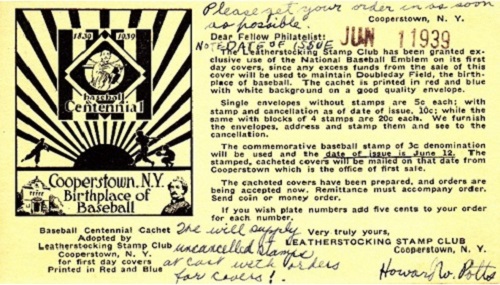 Please get your order in as soon
as possible.
Cooperstown, N. Y.
Dear Fellow Philatelist:
Note DATE OF ISSUE
JUN 11 1939
The Leatherstocking Stamp Club has been granted ex-
clusive use of the National Baseball Emblem on its first
day covers, since any excess funds from the sale of this
cover will be used to maintain Doubleday Field, the birth-
place of baseball. The cachet is printed in red and blue
with white background on a good quality envelope.
Single envelopes without stamps are 5c each; with
stamp and cancellation as of date of issue, 10c; while the
same with blocks of 4 stamps are 20c each. We furnish
the envelopes, address and stamp them and see to the
cancellation.
The commemorative baseball stamp of 3c denomination
will be used and the date of issue is June 12. The
stamped, cacheted covers will be mailed on that date from
Cooperstown which is the office of first sale.
The cacheted covers have been prepared, and orders are
being accepted now. Remittance must accompany order.
Send coin or money order.
If you wish plate numbers add five cents to your order
for each number.
Very truly yours,
LEATHERSTOCKING STAMP CLUB
Cooperstown, N. Y.
Howard W. Potts
We will supply
uncancelled stamps
at cost with orders
for covers!
1839
1939
baseball
Centennial
Cooperstown, N.Y.
Birthplace of
Baseball
Baseball Centennial Cachet
Adopted by
Leatherstocking Stamp Club
Cooperstown, N. Y.
for first day covers
Printed in Red and Blue